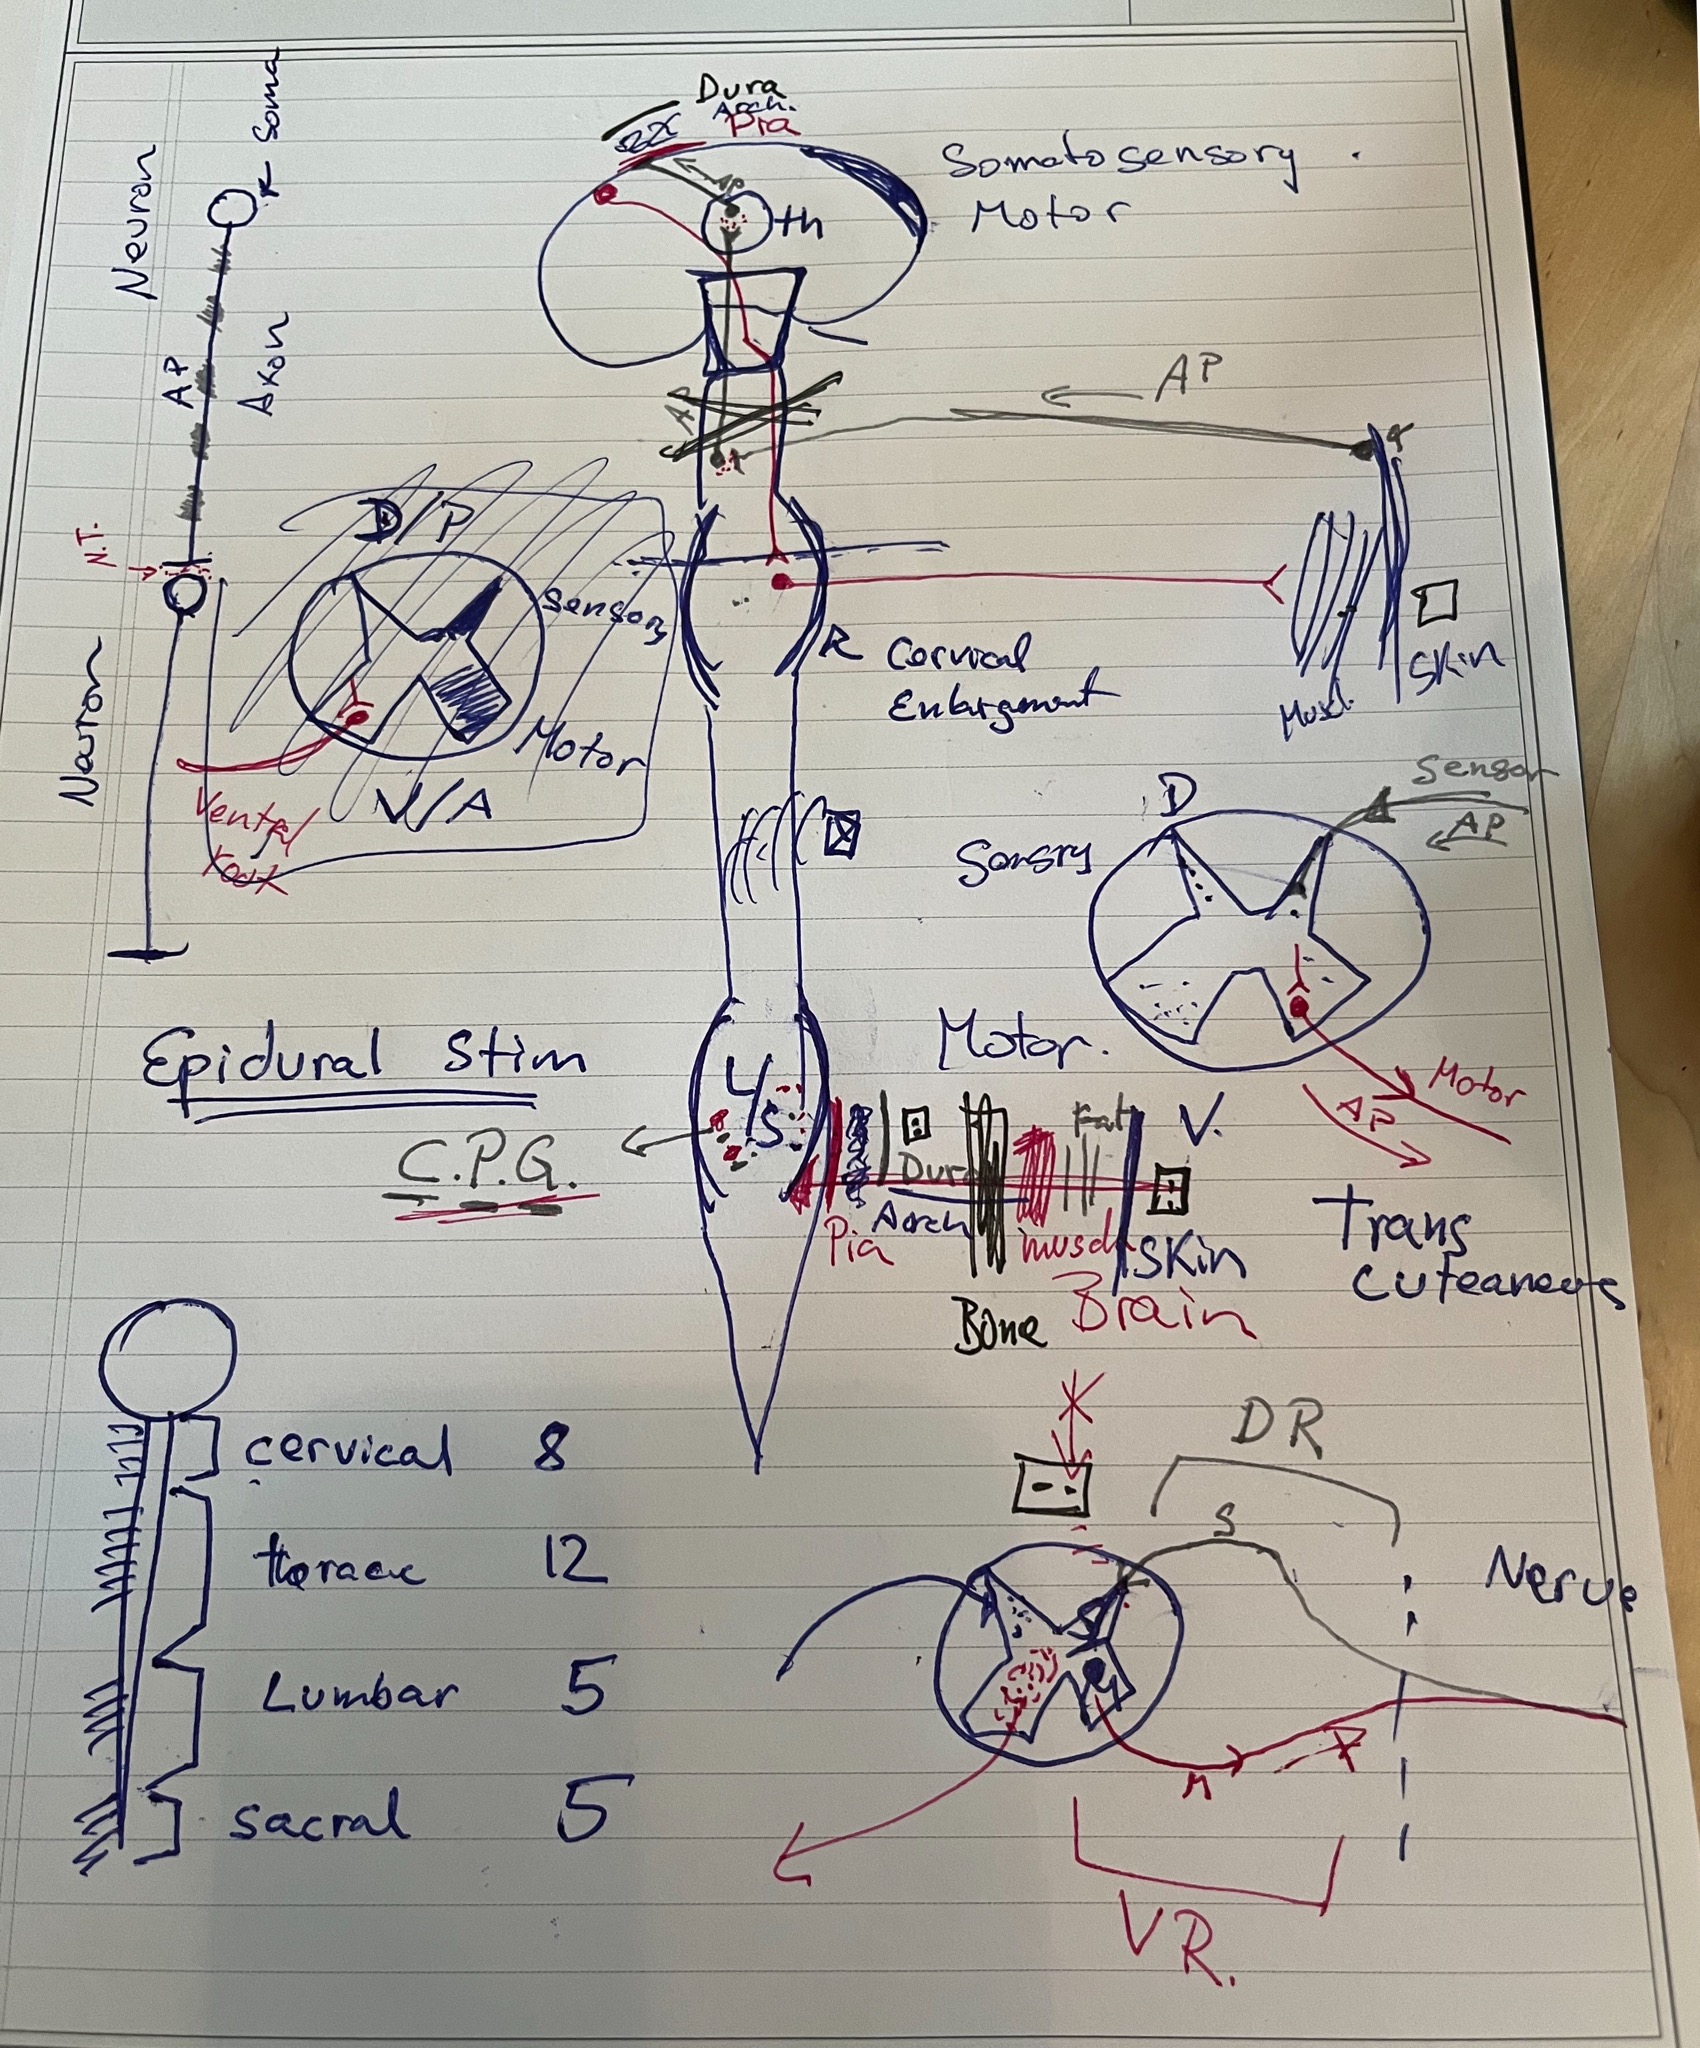 Dura
Arch.
Pia
AP
th
Somatosensory
Motor
Neuron
Soma
AP
Axon
N.T.
Neuron
AP
AP
D/P
Sensory
Motor
V/A
Ventral
root
R
Cervical
Enlargement
Muscl.
Skin
D
Sensory
Sensor
AP
Motor.
V.
Motor
AP
Epidural Stim
C.P.G.
L/S
Pia
Arch
Dura
Bone
muscle
Fat
Skin
Trans
Cuteaneous
Brain
cervical 8
thoracc 12
Lumbar 5
sacral 5
DR
S
Nerve
M
VR.